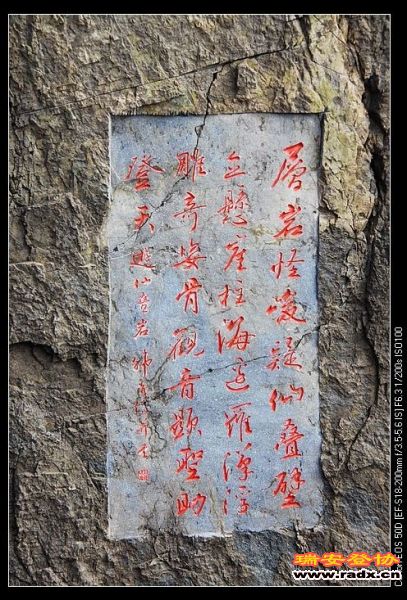 層岩怪峻疑仙疊壁
立懸崖柱海邊羅漢浮
雕奇姿骨觀音顯聖助
登天 仙岩
瑞安登协
www.radx.cn
EOS 50D [EF-S18-200mm f/3.5-5.6 IS] F6.3 1/200s ISO100